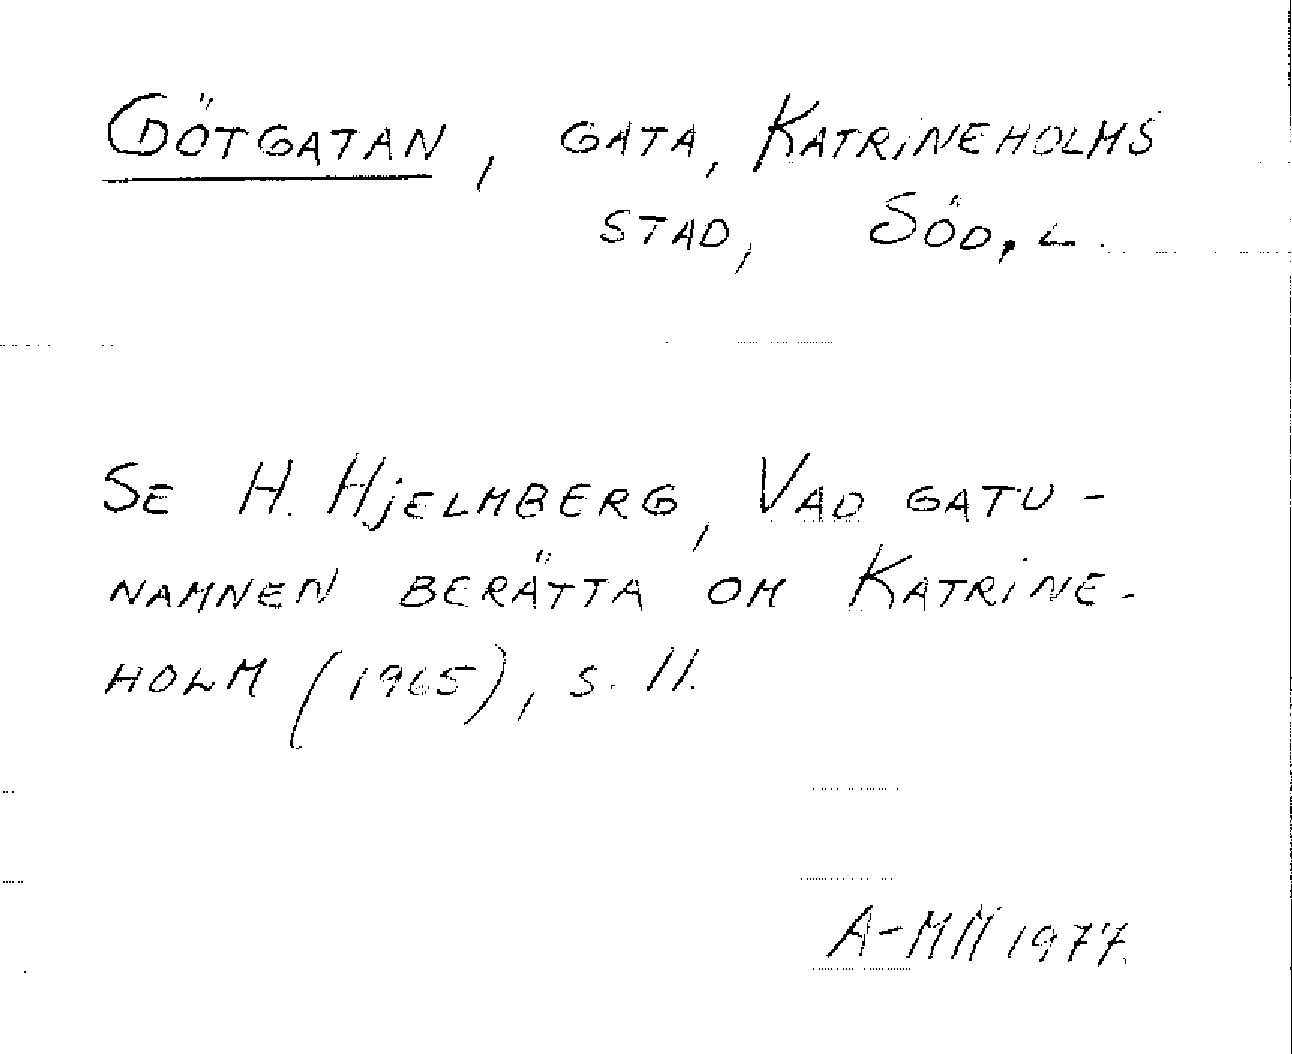 GÖTGATAN, GATA, KATRINEHOLMS
STAD, SÖD. L.
SE H. HJELMBERG, VAD GATU-
NAMNEN BERÄTTA OM KATRINE-
HOLM (1965), S. 11.
A-MM 1977.